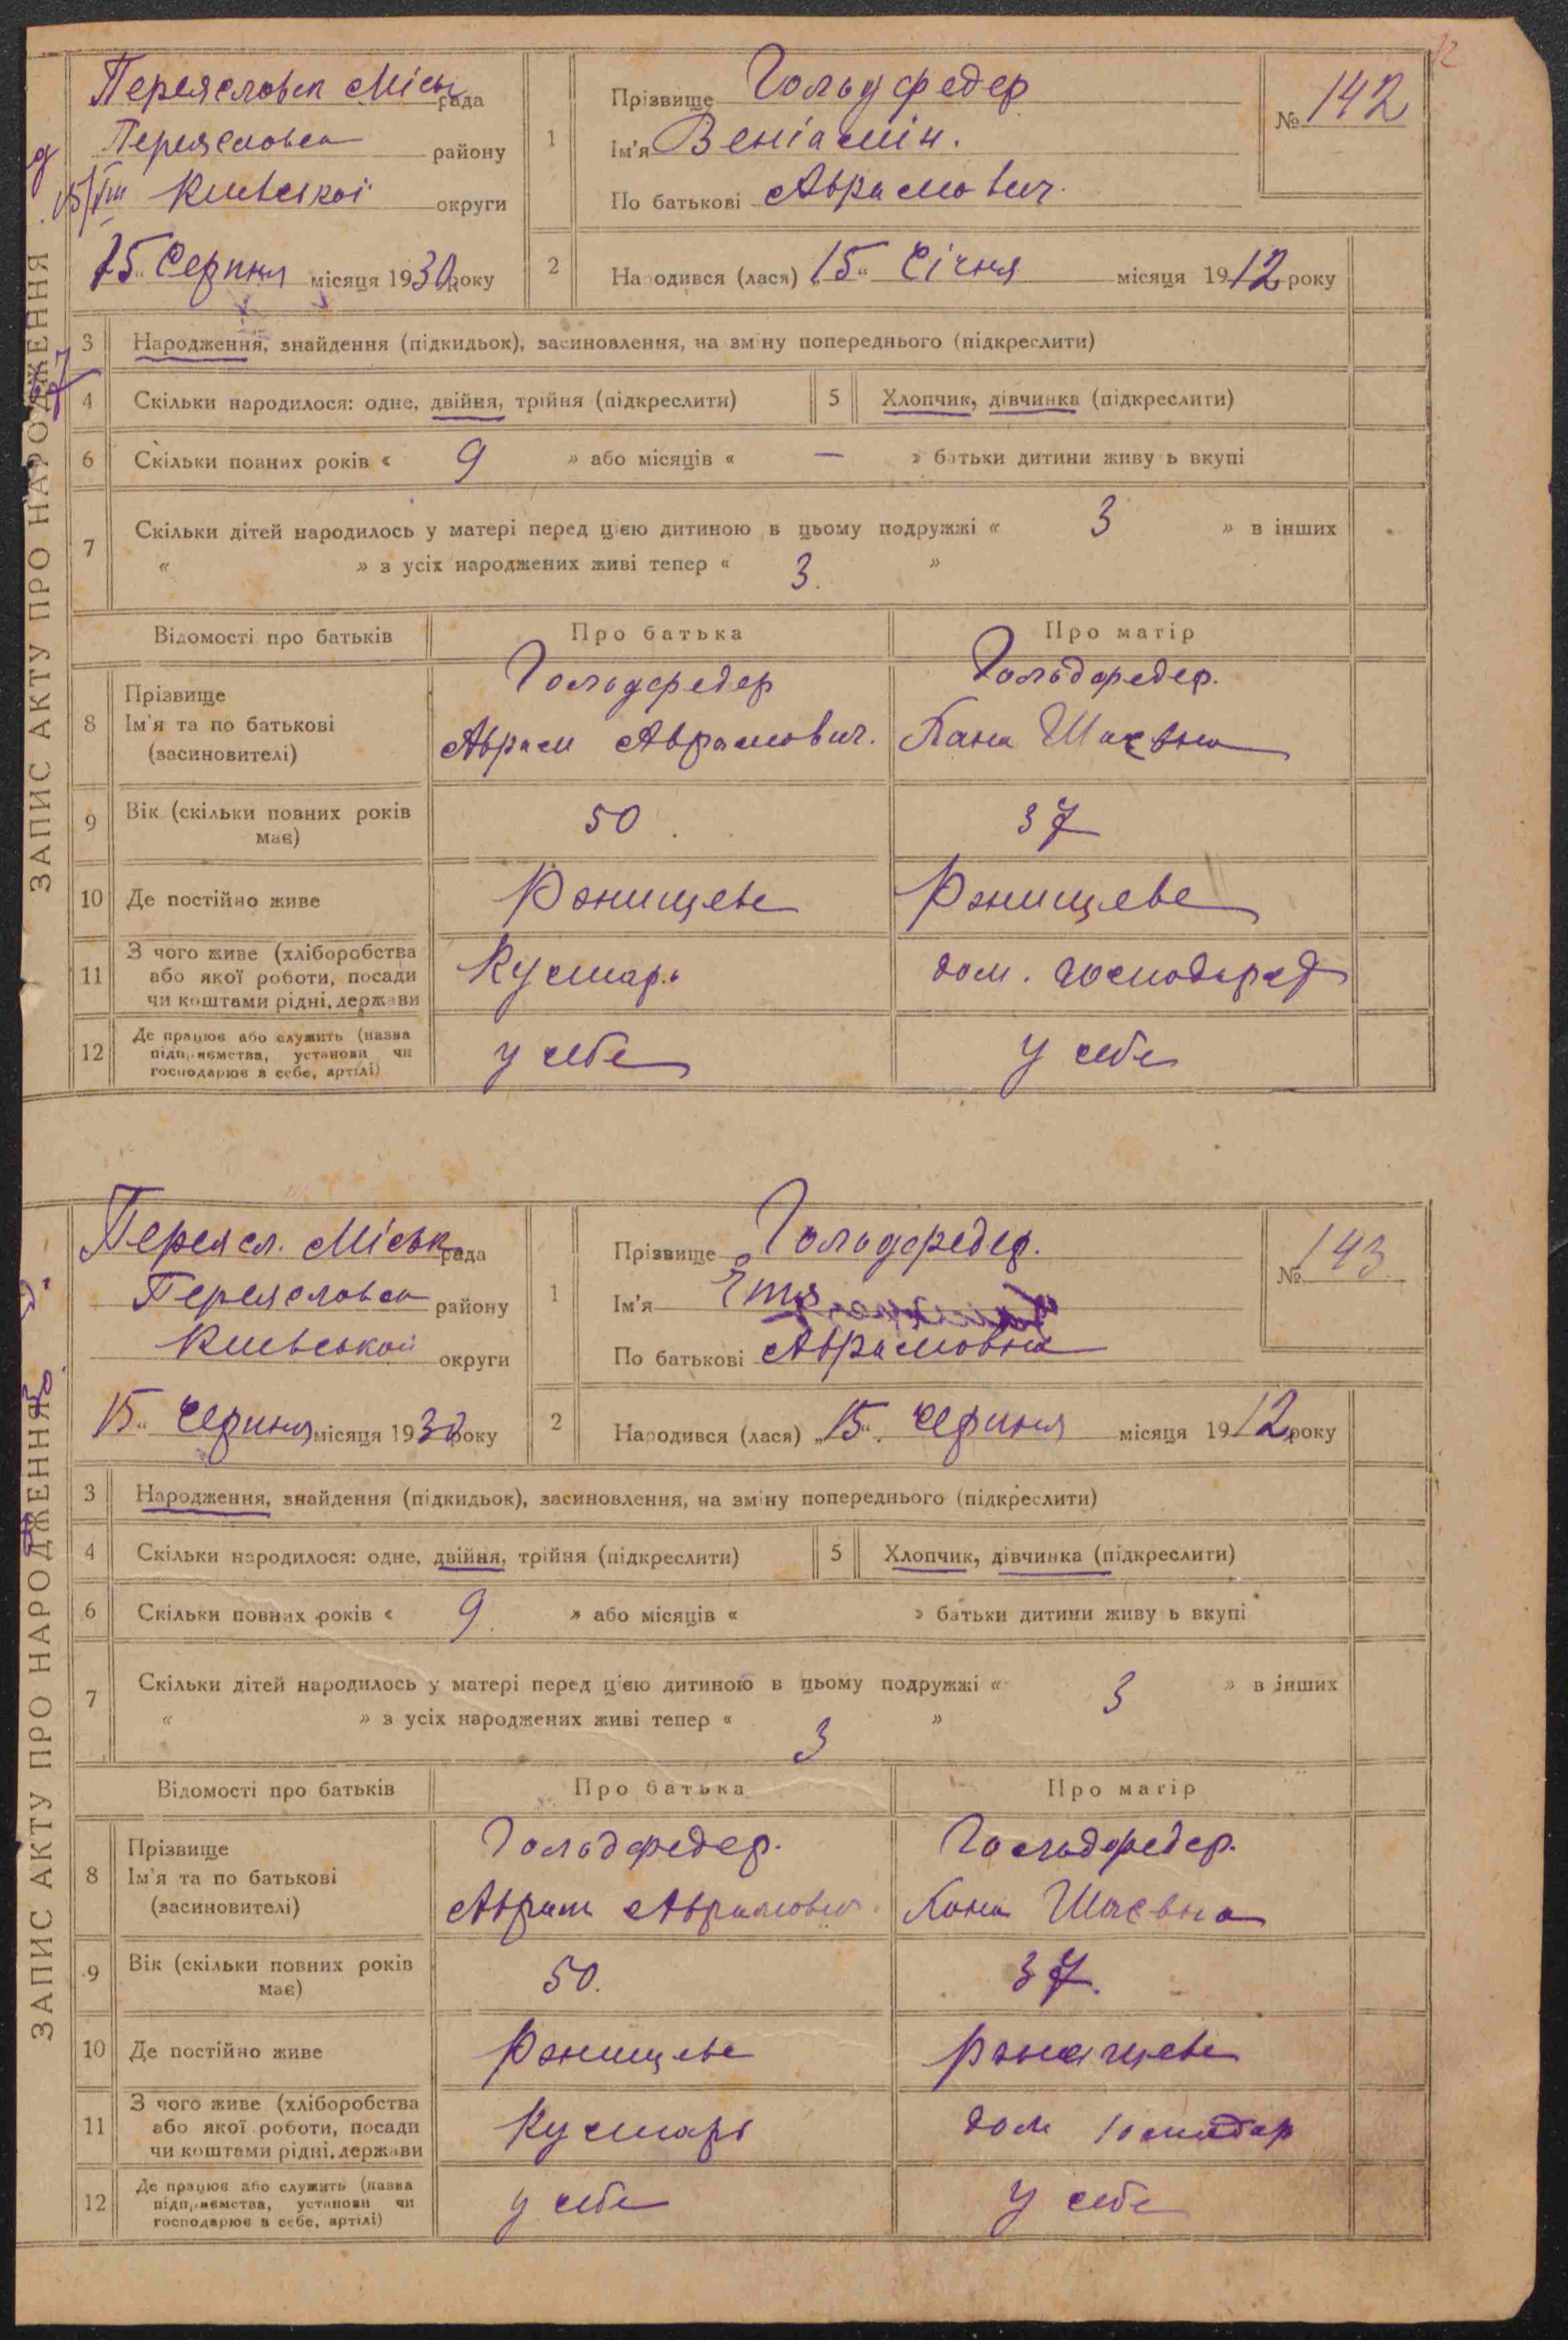 12
ЗАПИС АКТУ ПРО НАРОДЖЕННЯ
Переяславськ Міськ рада
Переяславськ району
Київської округи
15 Серпня місяця 1930 року
1
Прізвище Гольдфедер
Ім'я Веніамін.
По батькові Аврамович.
№ 142
2
Народився (лася) „15“ Січня місяця 1912 року
3 Народження, знайдення (підкидьок), засиновлення, на зміну попереднього (підкреслити)
4 Скільки народилося: одне, двійня, трійня (підкреслити) 5 Хлопчик, дівчинка (підкреслити)
6 Скільки повних років « 9 » або місяців « — » батьки дитини живуть вкупі
7 Скільки дітей народилось у матері перед цією дитиною в цьому подружжі « 3 » в інших
« » з усіх народжених живі тепер « 3. »
Відомості про батьків Про батька Про матір
8 Прізвище Гольдфедер Гольдфедер.
Ім'я та по батькові Аврам Аврамович. Шаєвна
(засиновителі)
9 Вік (скільки повних років має) 50 37
10 Де постійно живе
11 З чого живе (хліборобства Кустарь дом. господар
або якої роботи, посади
чи коштами рідні, держави
12 Де працює або служить (назва у себе у себе
підприємства, установи чи
господарює в себе, артілі)
ЗАПИС АКТУ ПРО НАРОДЖЕННЯ
Переясл. Міськ рада
Переяславськ району
Київської округи
15“ Серпня місяця 1930 року
1
Прізвище Гольдфедер.
Ім'я Етя
По батькові Аврамовна
№ 143
2
Народився (лася) „15“ Серпня місяця 1912 року
3 Народження, знайдення (підкидьок), засиновлення, на зміну попереднього (підкреслити)
4 Скільки народилося: одне, двійня, трійня (підкреслити) 5 Хлопчик, дівчинка (підкреслити)
6 Скільки повних років « 9. » або місяців « » батьки дитини живуть вкупі
7 Скільки дітей народилось у матері перед цією дитиною в цьому подружжі « 3 » в інших
« » з усіх народжених живі тепер « 3 »
Відомості про батьків Про батька Про матір
8 Прізвище Гольдфедер. Гольдфедер.
Ім'я та по батькові Аврам Аврамович. Шаєвна
(засиновителі)
9 Вік (скільки повних років має) 50. 37.
10 Де постійно живе
11 З чого живе (хліборобства Кустарь дом господар
або якої роботи, посади
чи коштами рідні, держави
12 Де працює або служить (назва у себе у себе
підприємства, установи чи
господарює в себе, артілі)